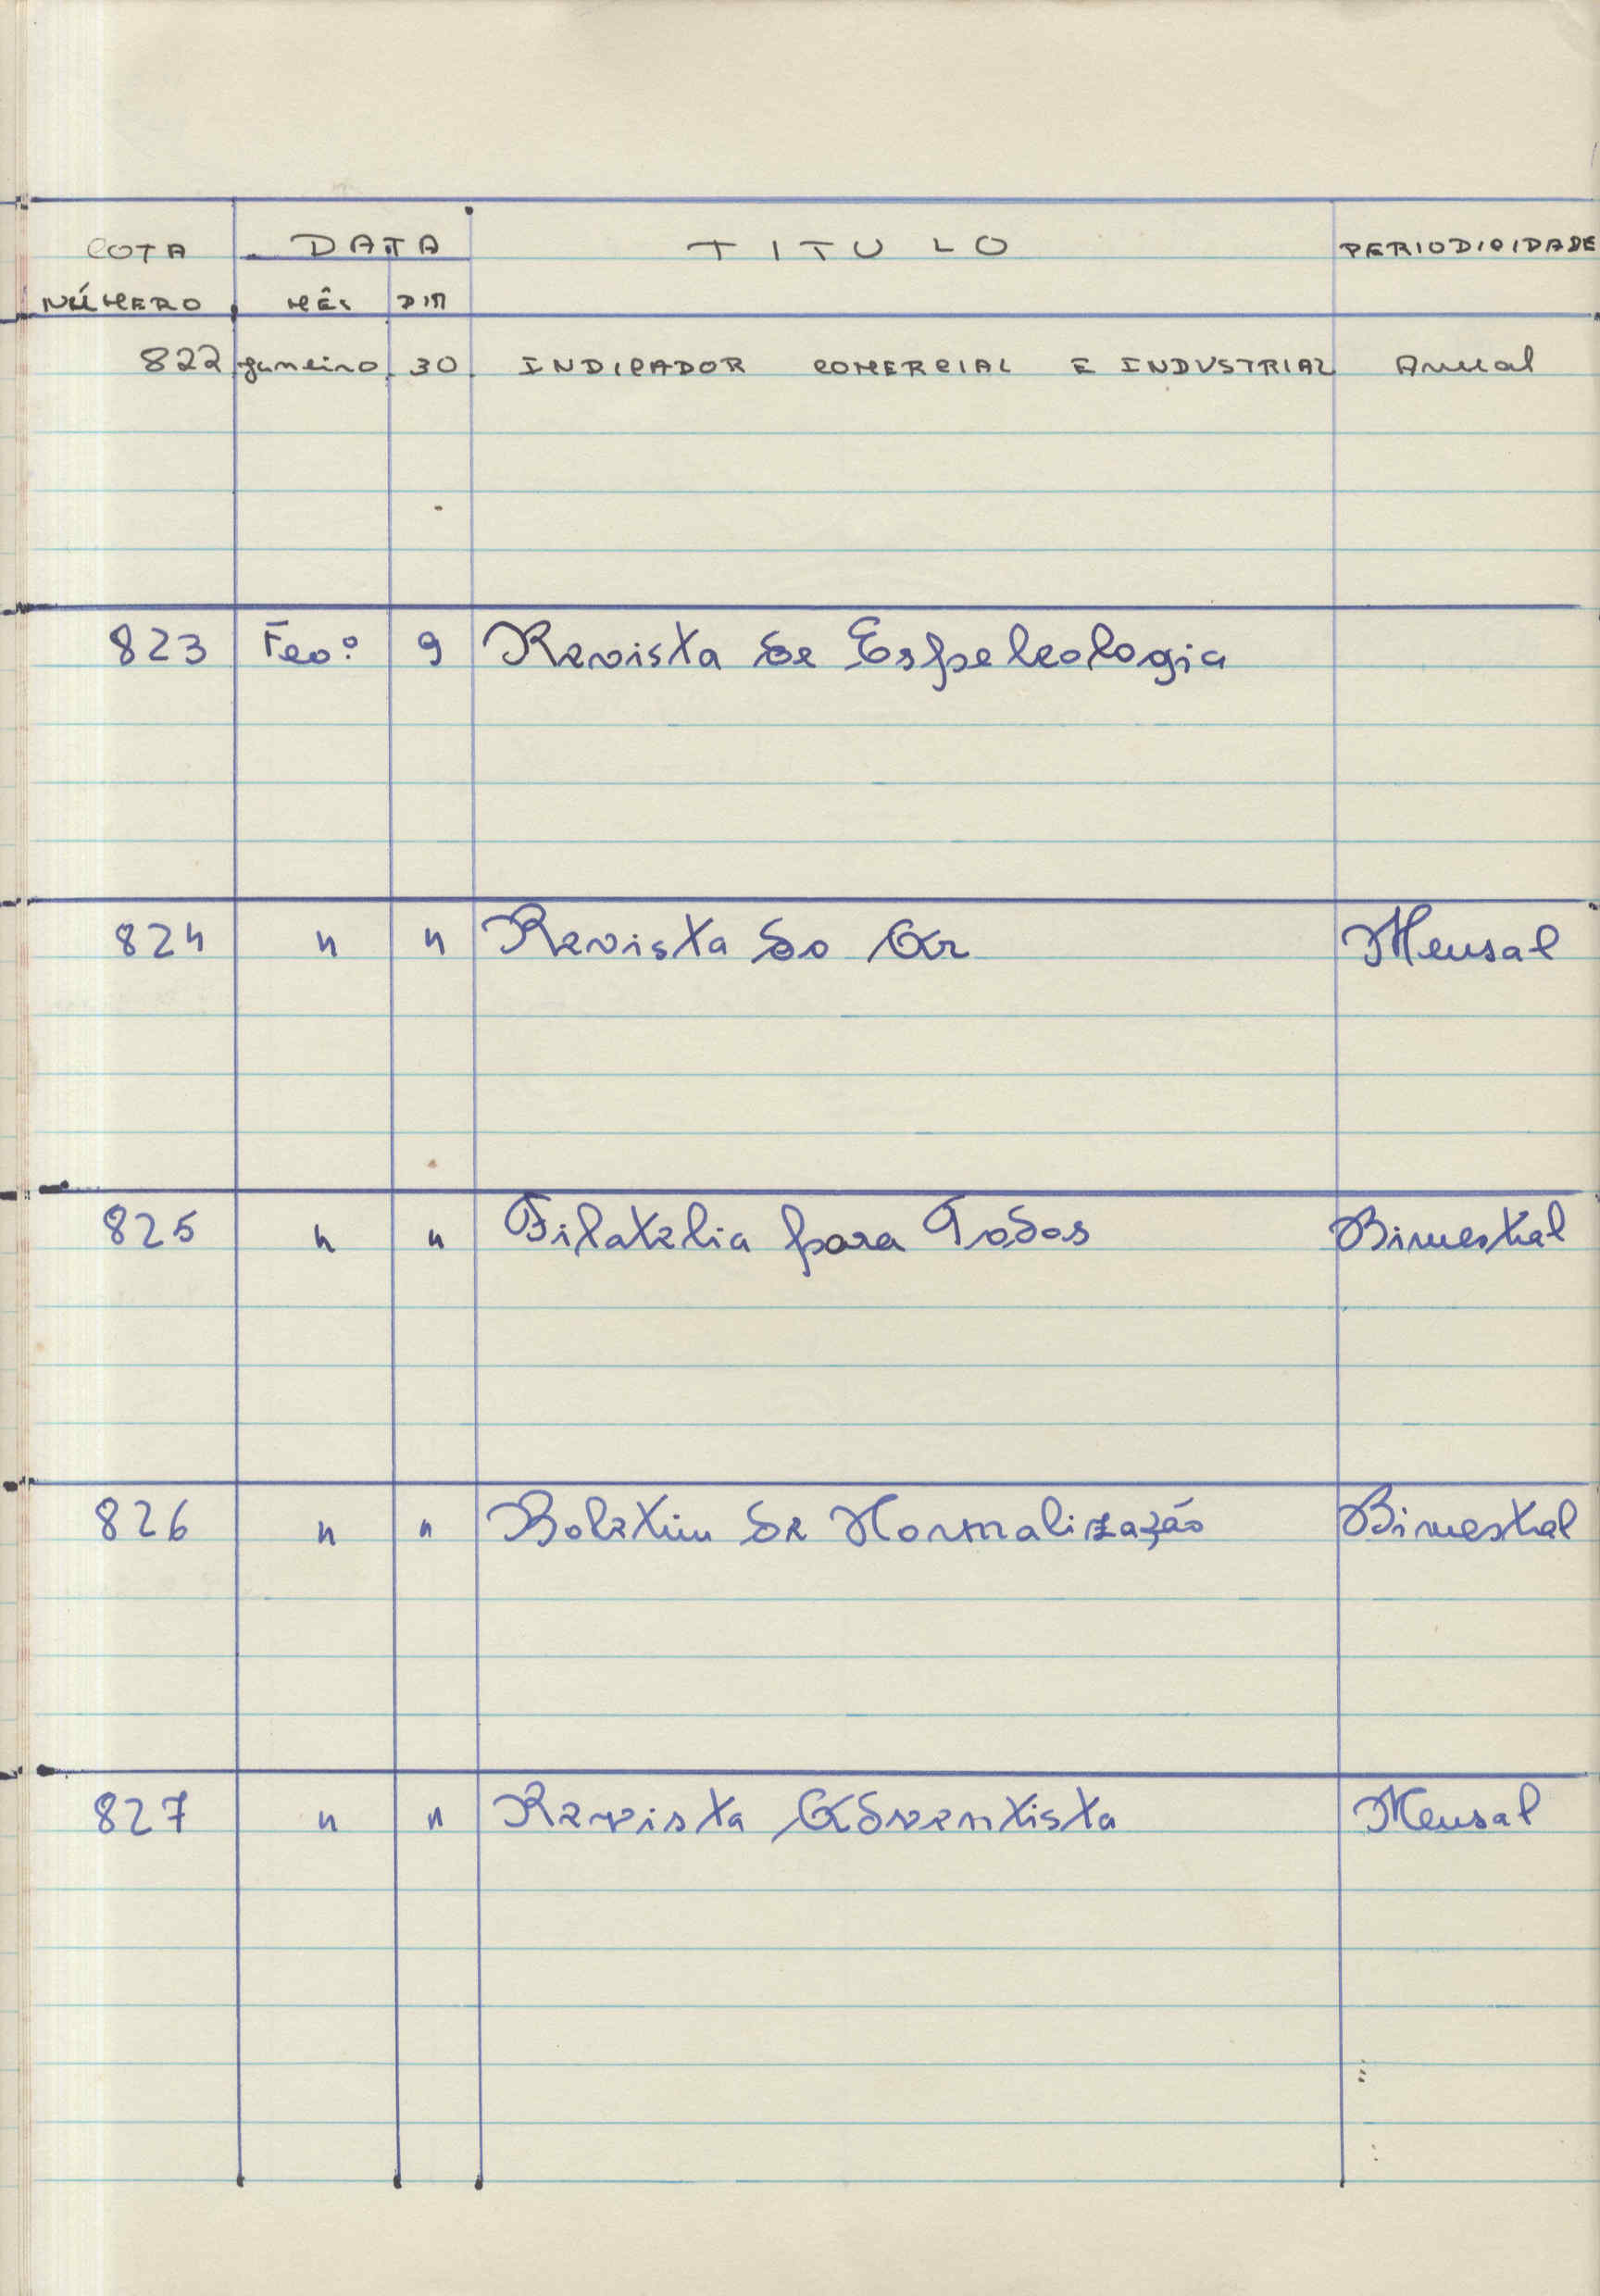 COTA DATA TITULO PERIODICIDADE
NÚMERO MÊS DIA
822 janeiro 30 INDICADOR COMERCIAL E INDUSTRIAL Anual
823 Fev.º 9 Revista de Espeleologia
824 " " Revista do Ar Mensal
825 " " Filatelia para Todos Bimestral
826 " " Boletim de Normalização Bimestral
827 " " Revista Adventista Mensal